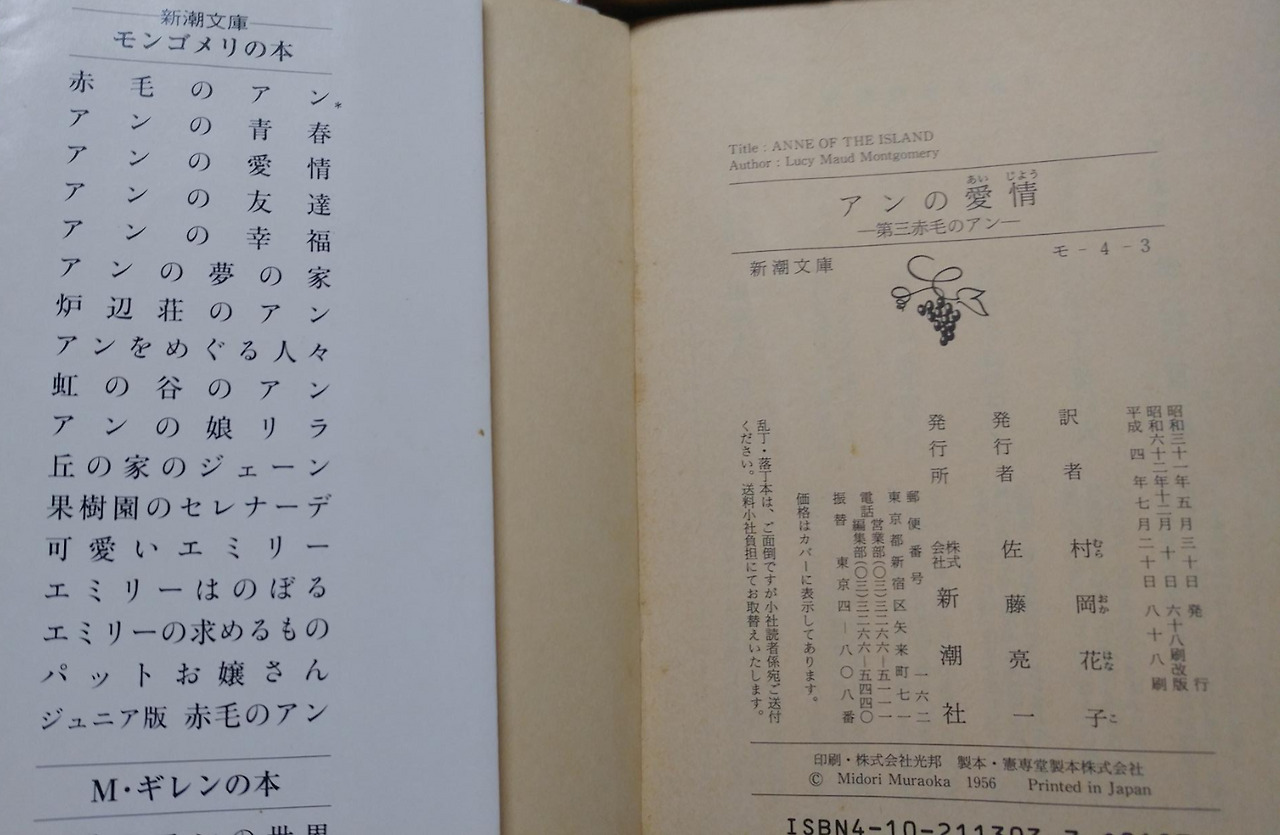 新潮文庫
モンゴメリの本
赤毛のアン*
アンの青春
アンの愛情
アンの友達
アンの幸福
アンの夢の家
炉辺荘のアン
アンをめぐる人々
虹の谷のアン
アンの娘リラ
丘の家のジェーン
果樹園のセレナーデ
可愛いエミリー
エミリーはのぼる
エミリーの求めるもの
パットお嬢さん
ジュニア版 赤毛のアン
M・ギレンの本
の世界
Title : ANNE OF THE ISLAND
Author : Lucy Maud Montgomery
アンの愛情
あい じょう
―第三赤毛のアン―
新潮文庫
モ - 4 - 3
昭和三十一年五月三十日 発行
昭和六十二年十二月十日 六十八刷改版
平成四年七月二十日 八十八刷
訳者 村岡花子
むら おか はな こ
発行者 佐藤亮一
発行所 株式会社 新潮社
郵便番号 一六二
東京都新宿区矢来町七一
営業部(〇三)三二六六―五一一一
電話
編集部(〇三)三二六六―五四四〇
振替 東京四―八〇八番
価格はカバーに表示してあります。
乱丁・落丁本は、ご面倒ですが小社読者係宛ご送付
ください。送料小社負担にてお取替えいたします。
印刷・株式会社光邦 製本・憲専堂製本株式会社
© Midori Muraoka 1956 Printed in Japan
ISBN4-10-211303-7